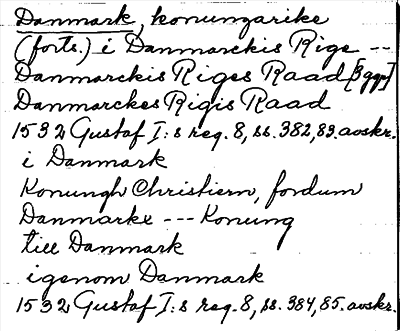 Danmark, konungarike
(forts.) i Danmarckis Rige --
Danmarckis Riges Raad [3 ggr]
Danmarckes Rigis Raad
1532 Gustaf I:s reg. 8, ss. 382, 83. avskr.
i Danmark
Konungh Christiern, fordum
Danmarkx --- Konung
till Danmark
igenom Danmark
1532 Gustaf I:s reg. 8, ss. 384, 85. avskr.